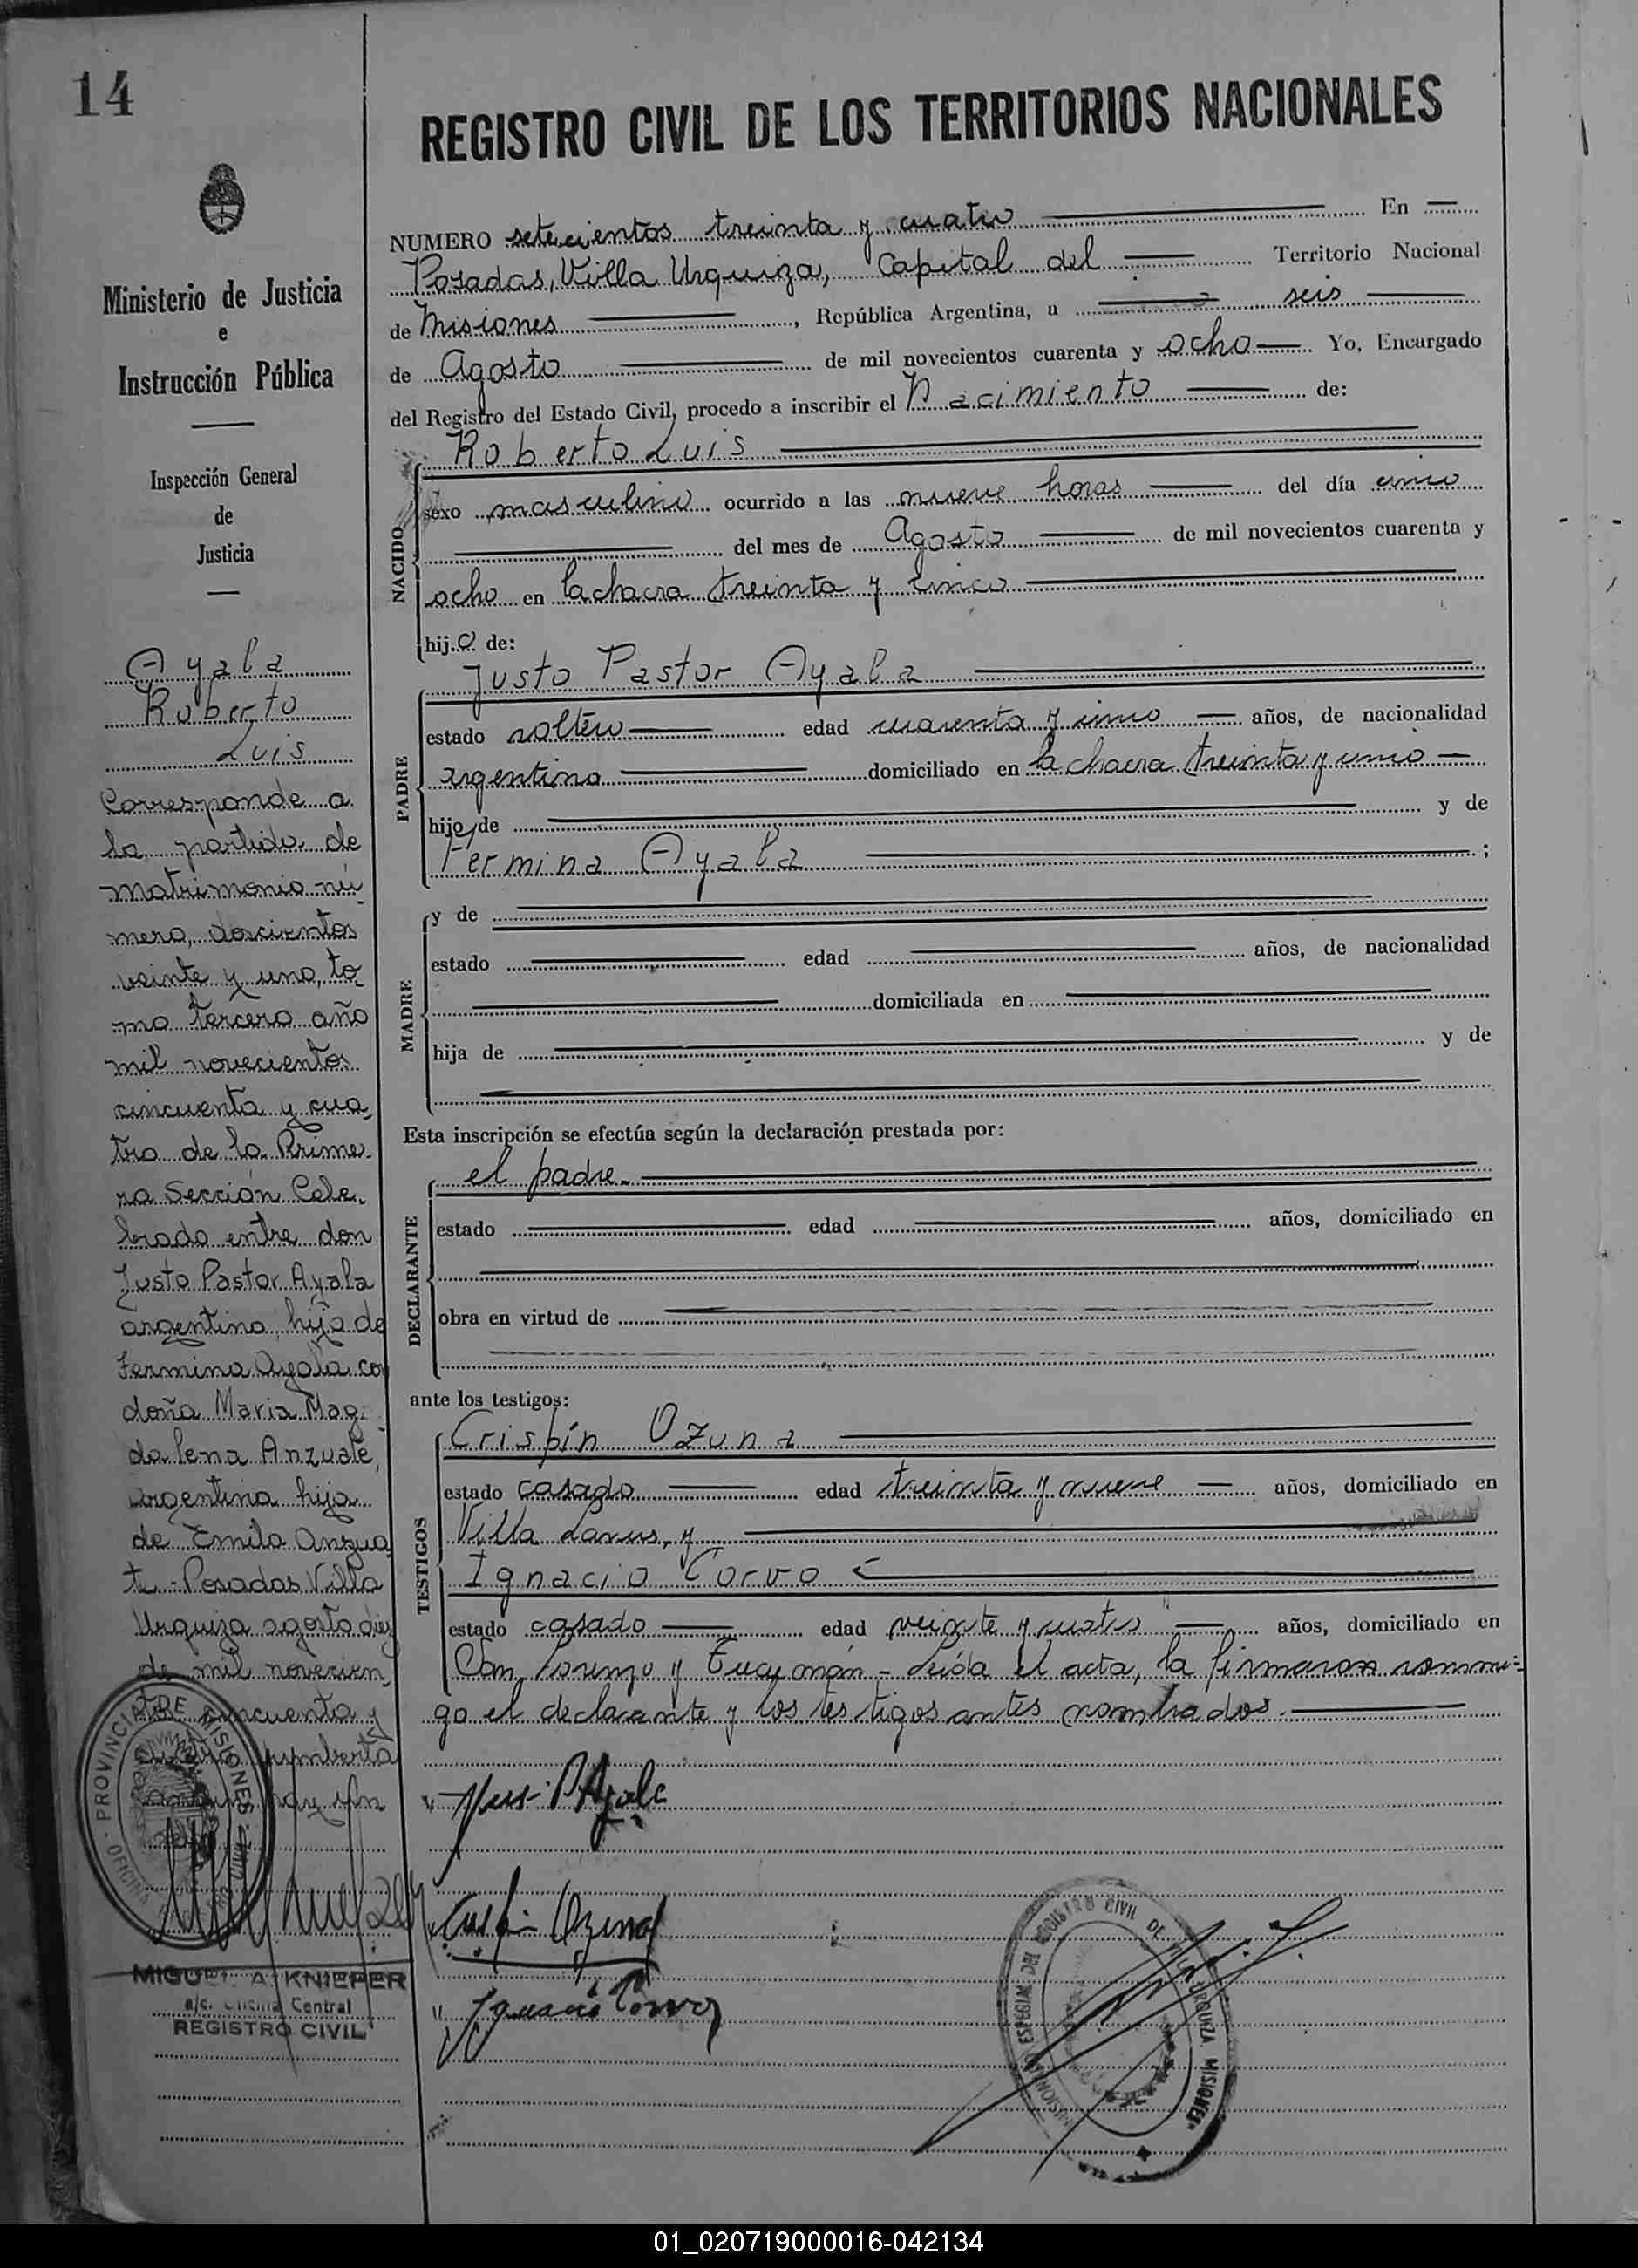 14
REGISTRO CIVIL DE LOS TERRITORIOS NACIONALES
Ministerio de Justicia
e
Instrucción Pública
Inspección General
de
Justicia
Ayala
Roberto
Luis
Corresponde a
la partida de
matrimonio nú
mero, doscientos
veinte y uno, to
mo tercero año
mil novecientos
cincuenta y cua
tro de la Prime
ra Sección Cele
brado entre don
Justo Pastor Ayala
argentino, hijo de
Fermina Ayala con
doña Maria Mag
dalena Anzuate,
argentina hija
de Emila Anzua
te - Posadas Villa
Urquiza agosto diez
de mil novecien
tos cincuenta y
PROVINCIA DE MISIONES
OFICINA
MIGUEL A. KNIEPER
a/c. Oficina Central
REGISTRO CIVIL
NUMERO setecientos treinta y cuatro En
Posadas, Villa Urquiza, Capital del Territorio Nacional
de Misiones, República Argentina, a seis
de Agosto de mil novecientos cuarenta y ocho Yo, Encargado
del Registro del Estado Civil, procedo a inscribir el Nacimiento de:
Roberto Luis
NACIDO
sexo masculino ocurrido a las nueve horas del día cinco
del mes de Agosto de mil novecientos cuarenta y
ocho en la chacra treinta y cinco
hijo de:
Justo Pastor Ayala
PADRE
estado soltero edad cuarenta y cinco años, de nacionalidad
argentina domiciliado en la chacra treinta y cinco
hijo de y de
Fermina Ayala ;
MADRE
y de
estado edad años, de nacionalidad
domiciliada en
hija de y de
Esta inscripción se efectúa según la declaración prestada por:
el padre.
DECLARANTE
estado edad años, domiciliado en
obra en virtud de
ante los testigos:
TESTIGOS
Crispín Ozuna
estado casado edad treinta y nueve años, domiciliado en
Villa Lanus, y
Ignacio Corvo
estado casado edad veinte y cuatro años, domiciliado en
San Lorenzo y Tucumán - Leída el acta, la firmaron conmi=
go el declarante y los testigos antes nombrados.
Crispin Ozuna
Ignacio Corvo
ESPECIAL DEL REGISTRO CIVIL DE VILLA URQUIZA MISIONES
01_020719000016-042134